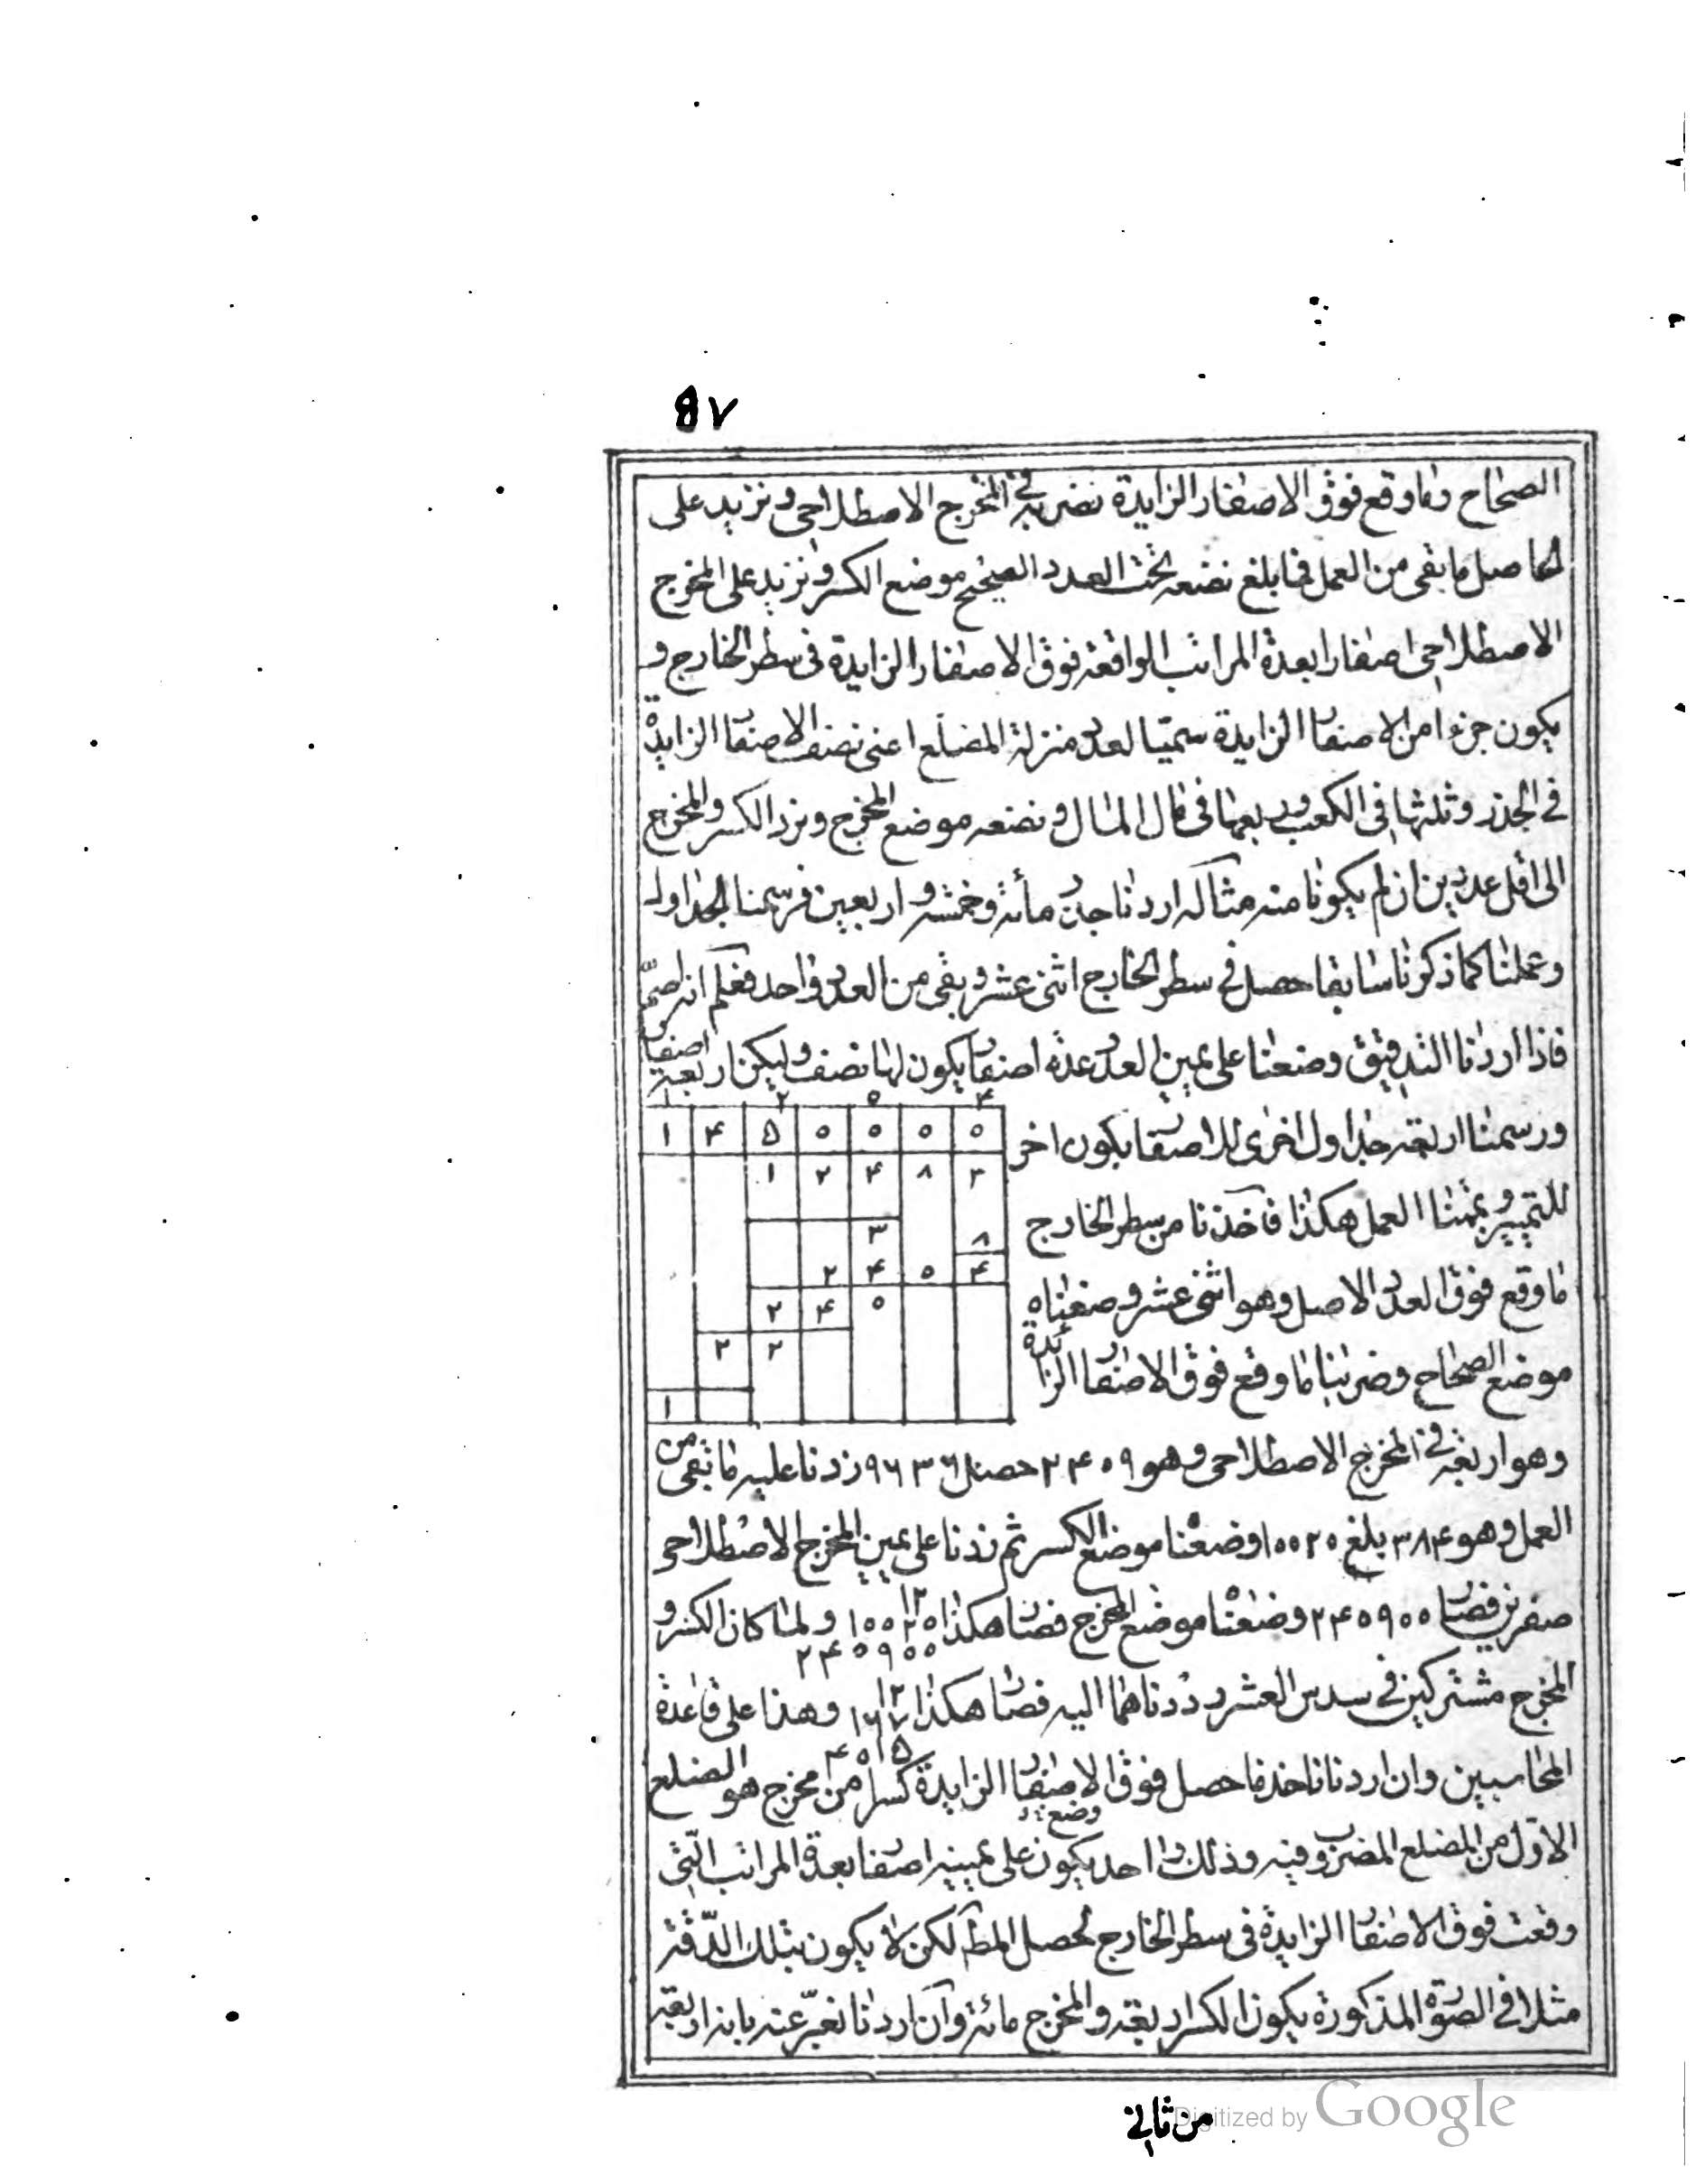 ٤٧
الصحاح وما وقع فوق الاصفار الزايدة نضربه فى المخرج الاصطلاحى و نزيد على
الحاصل ما بقى من العمل فما بلغ نضعه تحت العدد الصحيح موضع الكسر و نزيد على المخرج
الاصطلاحى اصفارا بعدة المراتب الواقعة فوق الاصفار الزايدة فى سطر الخارج و
يكون جزءا من الاصفار الزايدة سميّا لعدد منزلة المضلع اعنى نصف الاصفار الزايدة
فى الجذر و ثلثها فى الكعب و ربعها فى مال المال و نضعه موضع المخرج و نرد الكسر و المخرج
الى اقل عددين ان لم يكونا منه مثاله اردنا جذر مائة و خمسة و اربعين فرسمنا الجداول
و عملنا كما ذكرنا سابقا حصل فى سطر الخارج اثنى عشر و بقى من العدد واحد فعلم انه اصمّ
فاذا اردنا التدقيق وضعنا على يمين العدد عدة اصفار يكون لها نصف و ليكن اربعة اصفار
١ ٢ ٠ ۴
١ ۴ ۵ ٠ ٠ ٠ ٠
١ ٢ ۴ ٨ ٣
٣ ٨
٢ ۴ ٠ ۴
٢ ۴ ٠
٢ ٢
١
و رسمنا اربعة جداول اخرى للاصفار يكون اخر
للتمييز و تممنا العمل هكذا فاخذنا من سطر الخارج
ما وقع فوق العدد الاصل و هو اثنى عشر وضعناه
موضع الصحاح و ضربنا ما وقع فوق الاصفار الزائدة
و هو اربعة فى المخرج الاصطلاحى و هو ٢۴٠٩ حصل ٩٦٣٦ زدنا عليه ما بقى من
العمل و هو ٣٨۴ بلغ ١٠٠٢٠ وضعنا موضع الكسر ثم زدنا على يمين المخرج الاصطلاحى
صفرين فصار ٢۴٠٩٠٠ وضعنا موضع المخرج فصار هكذا ١٢ ١٠٠٢٠ ٢۴٠٩٠٠ و لما كان الكسر و
المخرج مشتركين فى سدس العشر رددناهما اليه فصار هكذا ١٢ ١٦٧ ۴٠١۵ و هذا على قاعدة
المحاسبين و ان اردنا ناخذ ما حصل فوق الاصفار الزايدة كسرا من مخرج هو الضلع
الاول من المضلع المضروب فيه و ذلك واحد يكون وضع على يمينه اصفار بعدة المراتب التى
وقعت فوق الاصفار الزايدة فى سطر الخارج لحصل المط لكن لا يكون بتلك الدّقّة
مثلا فى الصورة المذكورة يكون الكسر اربعة و المخرج مائة و ان اردنا نعبّر عنه بانه اربعة
من ثانى
Digitized by Google